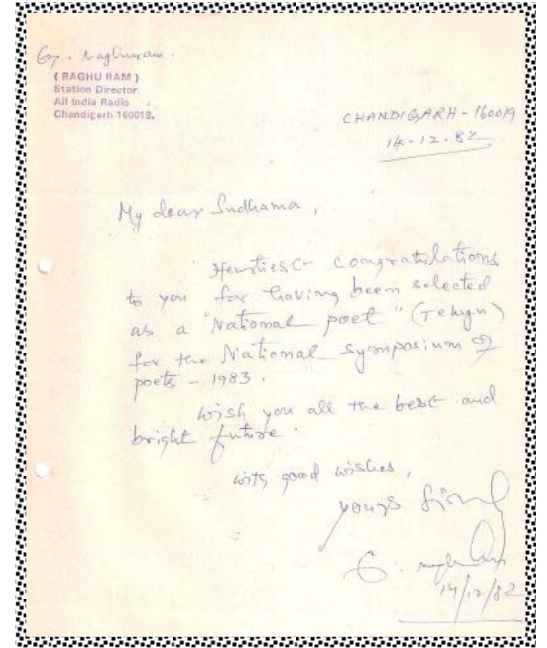 G. Raghuram.
( RAGHU RAM )
Station Director
All India Radio
Chandigarh-160018.
CHANDIGARH - 160019
14-12-82
My dear Sudhama,
Heartiest congratulations
to you for having been selected
as a "National poet" (Telugu)
for the National symposium of
poets - 1983.
Wish you all the best and
bright future.
with good wishes,
yours
G.
14/12/82